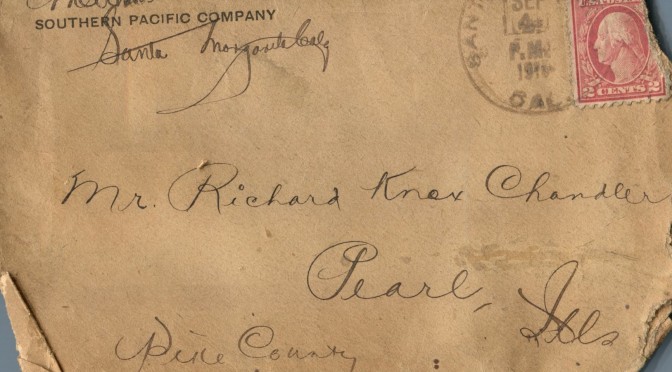 SOUTHERN PACIFIC COMPANY
Santa Margarita Calif
SEP
4
P.M.
CAL
2 CENTS 2
Mr. Richard Knox Chandler
Pearl, Ills
Pike County